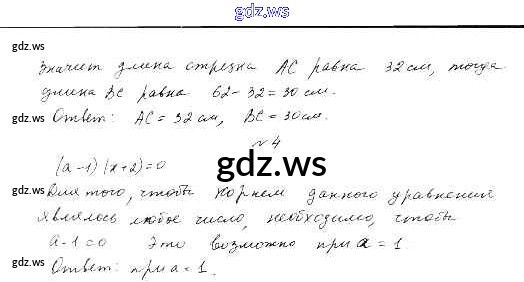 gdz.ws
gdz.ws
значит длина отрезка АС равна 32 см, тогда
длина ВС равна 62-32=30 см.
gdz.ws Ответ: АС = 32 см, ВС = 30 см.
№4
(a-1)(x+2)=0
gdz.ws
gdz.ws Для того, чтобы корнем данного уравнения
являлось любое число, необходимо, чтобы
a-1=0 Это возможно при a = 1.
gdz.ws Ответ: при a = 1.